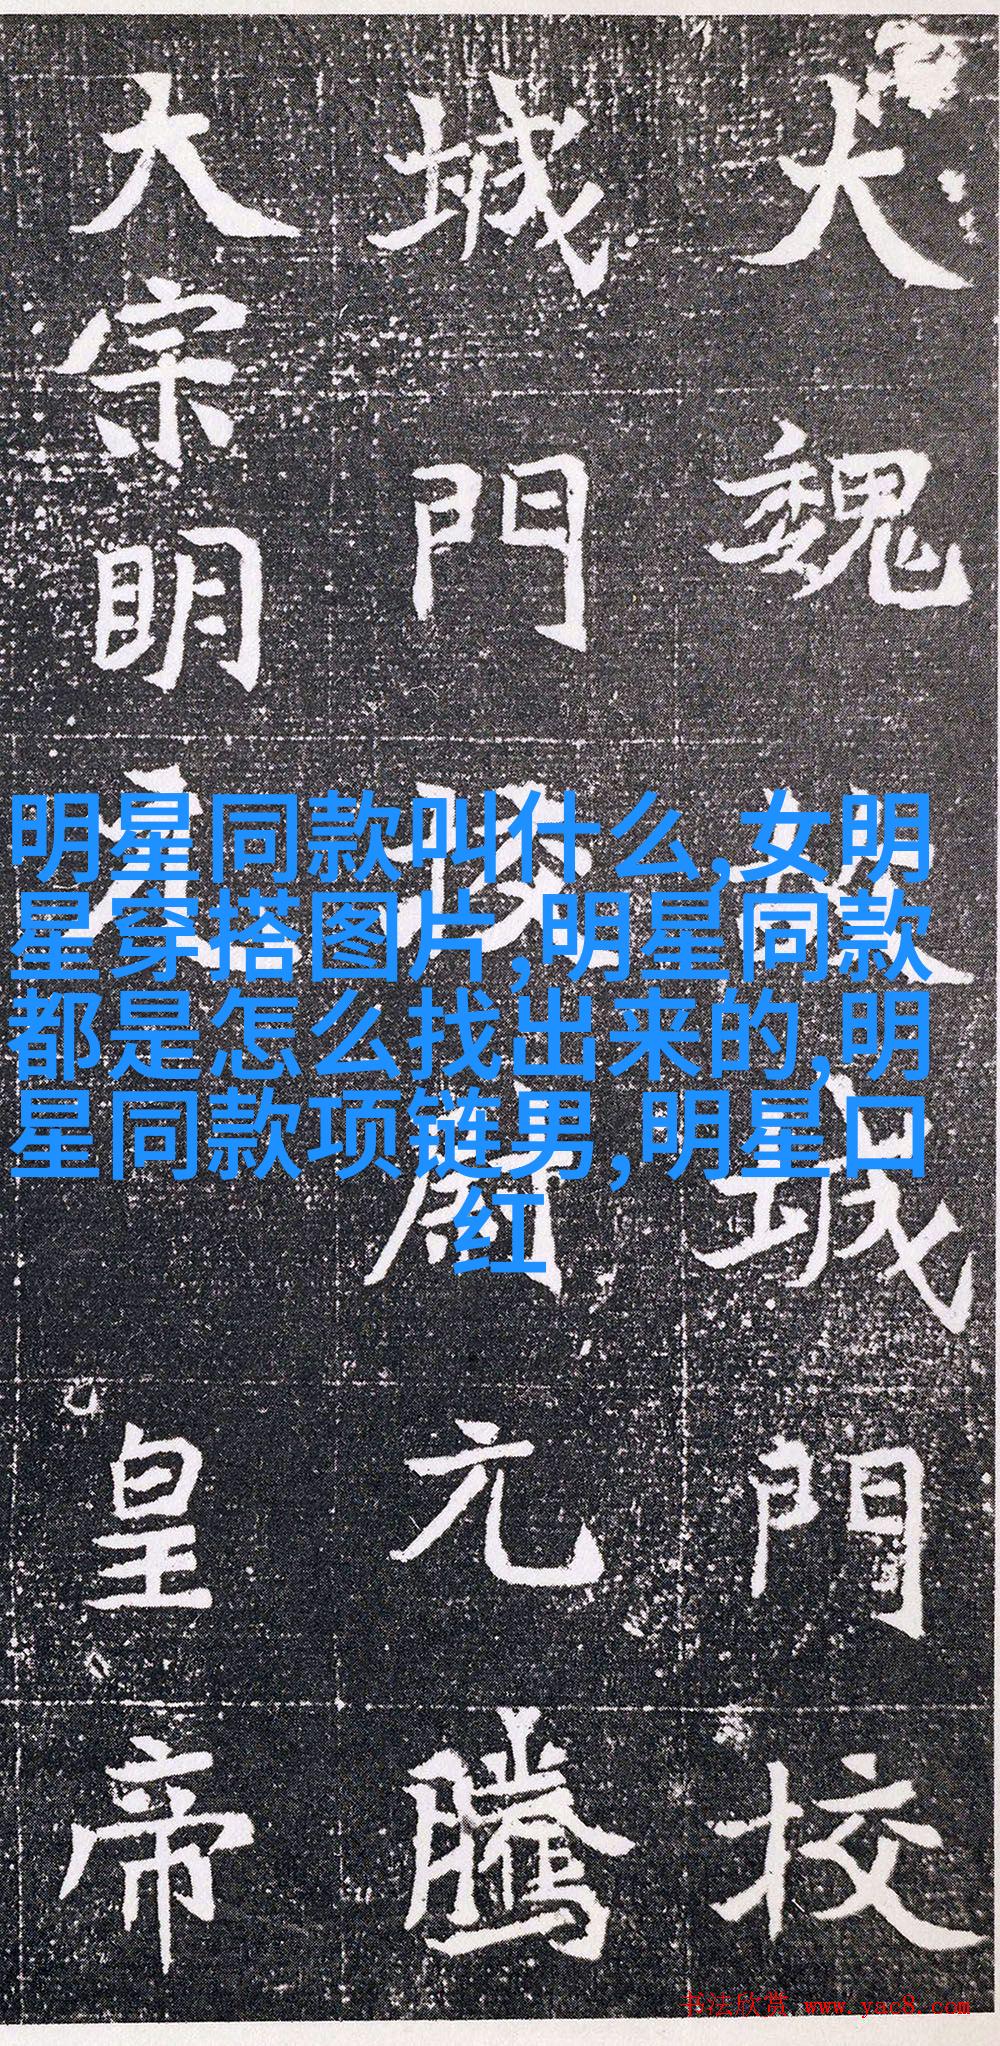 大魏城門校
城門元騰
大宗明皇帝
明星同款叫什么,女明
星穿搭图片,明星同款
都是怎么找出来的,明
星同款项链男,明星口
红
书法欣赏 www.yac8.com